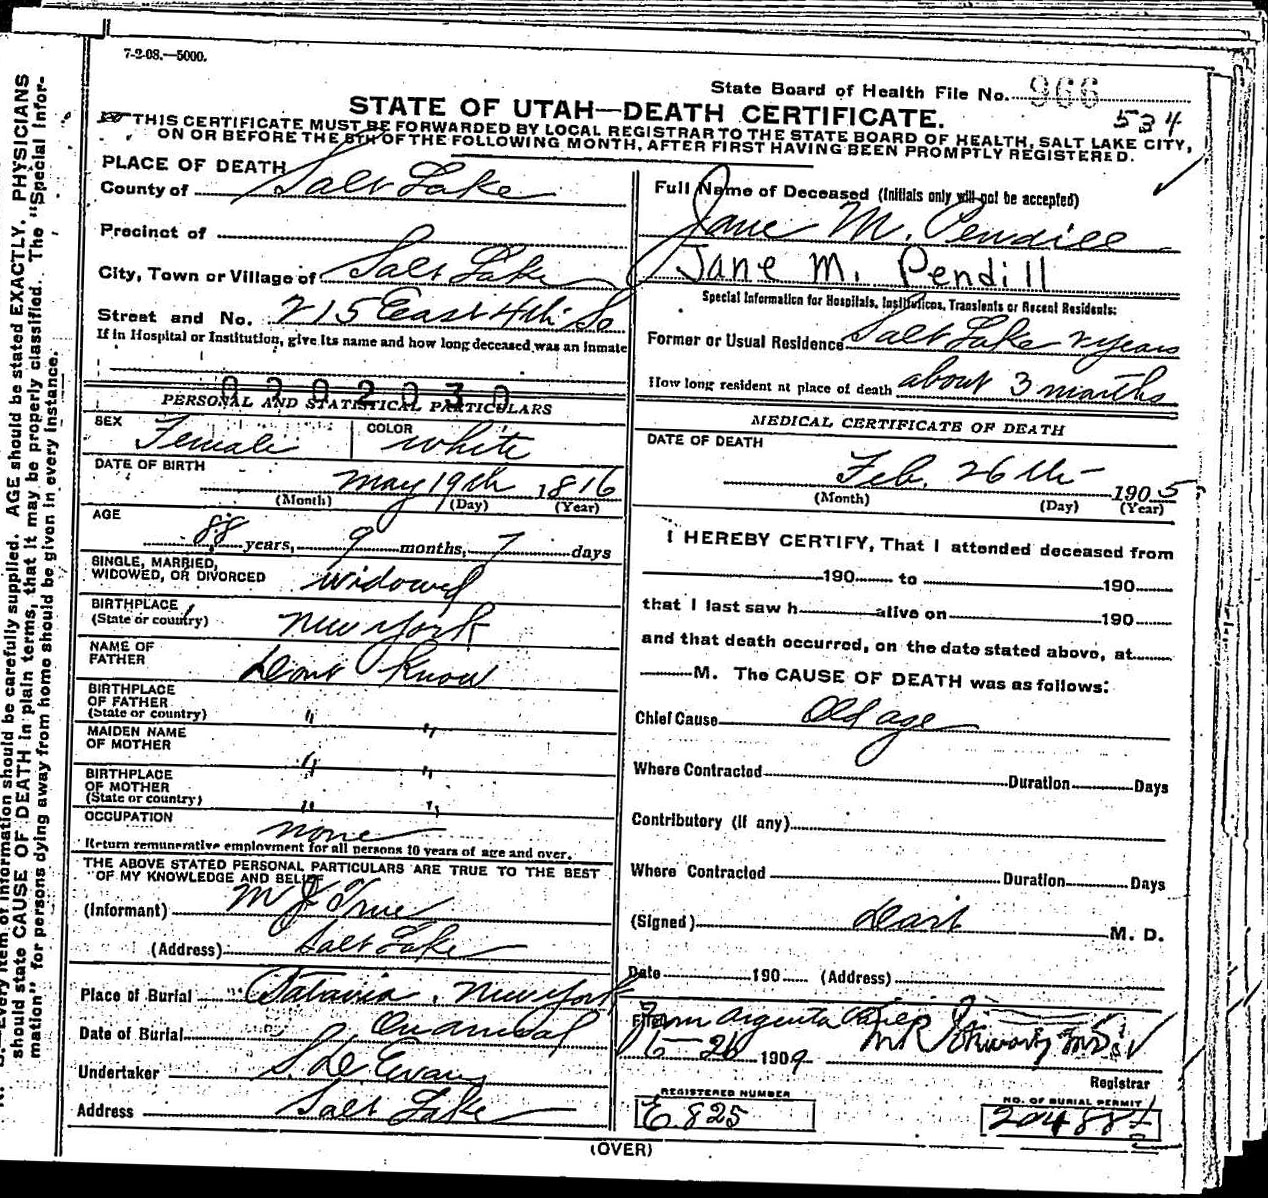 7-2-08.—5000.
State Board of Health File No. 966
STATE OF UTAH—DEATH CERTIFICATE.
534
THIS CERTIFICATE MUST BE FORWARDED BY LOCAL REGISTRAR TO THE STATE BOARD OF HEALTH, SALT LAKE CITY,
ON OR BEFORE THE 5TH OF THE FOLLOWING MONTH, AFTER FIRST HAVING BEEN PROMPTLY REGISTERED.
PLACE OF DEATH
County of Salt Lake
Precinct of
City, Town or Village of Salt Lake
Street and No. 215 East 4th So
If in Hospital or Institution, give its name and how long deceased was an inmate
0202030
PERSONAL AND STATISTICAL PARTICULARS
SEX Female COLOR white
DATE OF BIRTH May 19th 1816
(Month) (Day) (Year)
AGE
88 years, 9 months, 7 days
SINGLE, MARRIED,
WIDOWED, OR DIVORCED widowed
BIRTHPLACE
(State or country) New York
NAME OF
FATHER Dont Know
BIRTHPLACE
OF FATHER
(State or country) " "
MAIDEN NAME
OF MOTHER " "
BIRTHPLACE
OF MOTHER
(State or country) " "
OCCUPATION none
Return remunerative employment for all persons 10 years of age and over.
THE ABOVE STATED PERSONAL PARTICULARS ARE TRUE TO THE BEST
OF MY KNOWLEDGE AND BELIEF
(Informant) M J True
(Address) Salt Lake
Place of Burial Batavia, New York
Date of Burial On arrival
Undertaker S. D. Evans
Address Salt Lake
Full Name of Deceased (Initials only will not be accepted)
Jane M. Pendill
Jane M. Pendill
Special Information for Hospitals, Institutions, Transients or Recent Residents:
Former or Usual Residence Salt Lake 2 years
How long resident at place of death about 3 months
MEDICAL CERTIFICATE OF DEATH
DATE OF DEATH
Feb. 26th 1905
(Month) (Day) (Year)
I HEREBY CERTIFY, That I attended deceased from
190 to 190
that I last saw h alive on 190
and that death occurred, on the date stated above, at
M. The CAUSE OF DEATH was as follows:
Chief Cause Old age
Where Contracted Duration Days
Contributory (if any)
Where Contracted Duration Days
(Signed) M. D.
Date 190 (Address)
Filed
6-26 1909
Registrar
REGISTERED NUMBER
E 825
NO. OF BURIAL PERMIT
20488
(OVER)
Every item of information should be carefully supplied. AGE should be stated EXACTLY. PHYSICIANS
should state CAUSE OF DEATH in plain terms, that it may be properly classified. The "Special Infor-
mation" for persons dying away from home should be given in every instance.